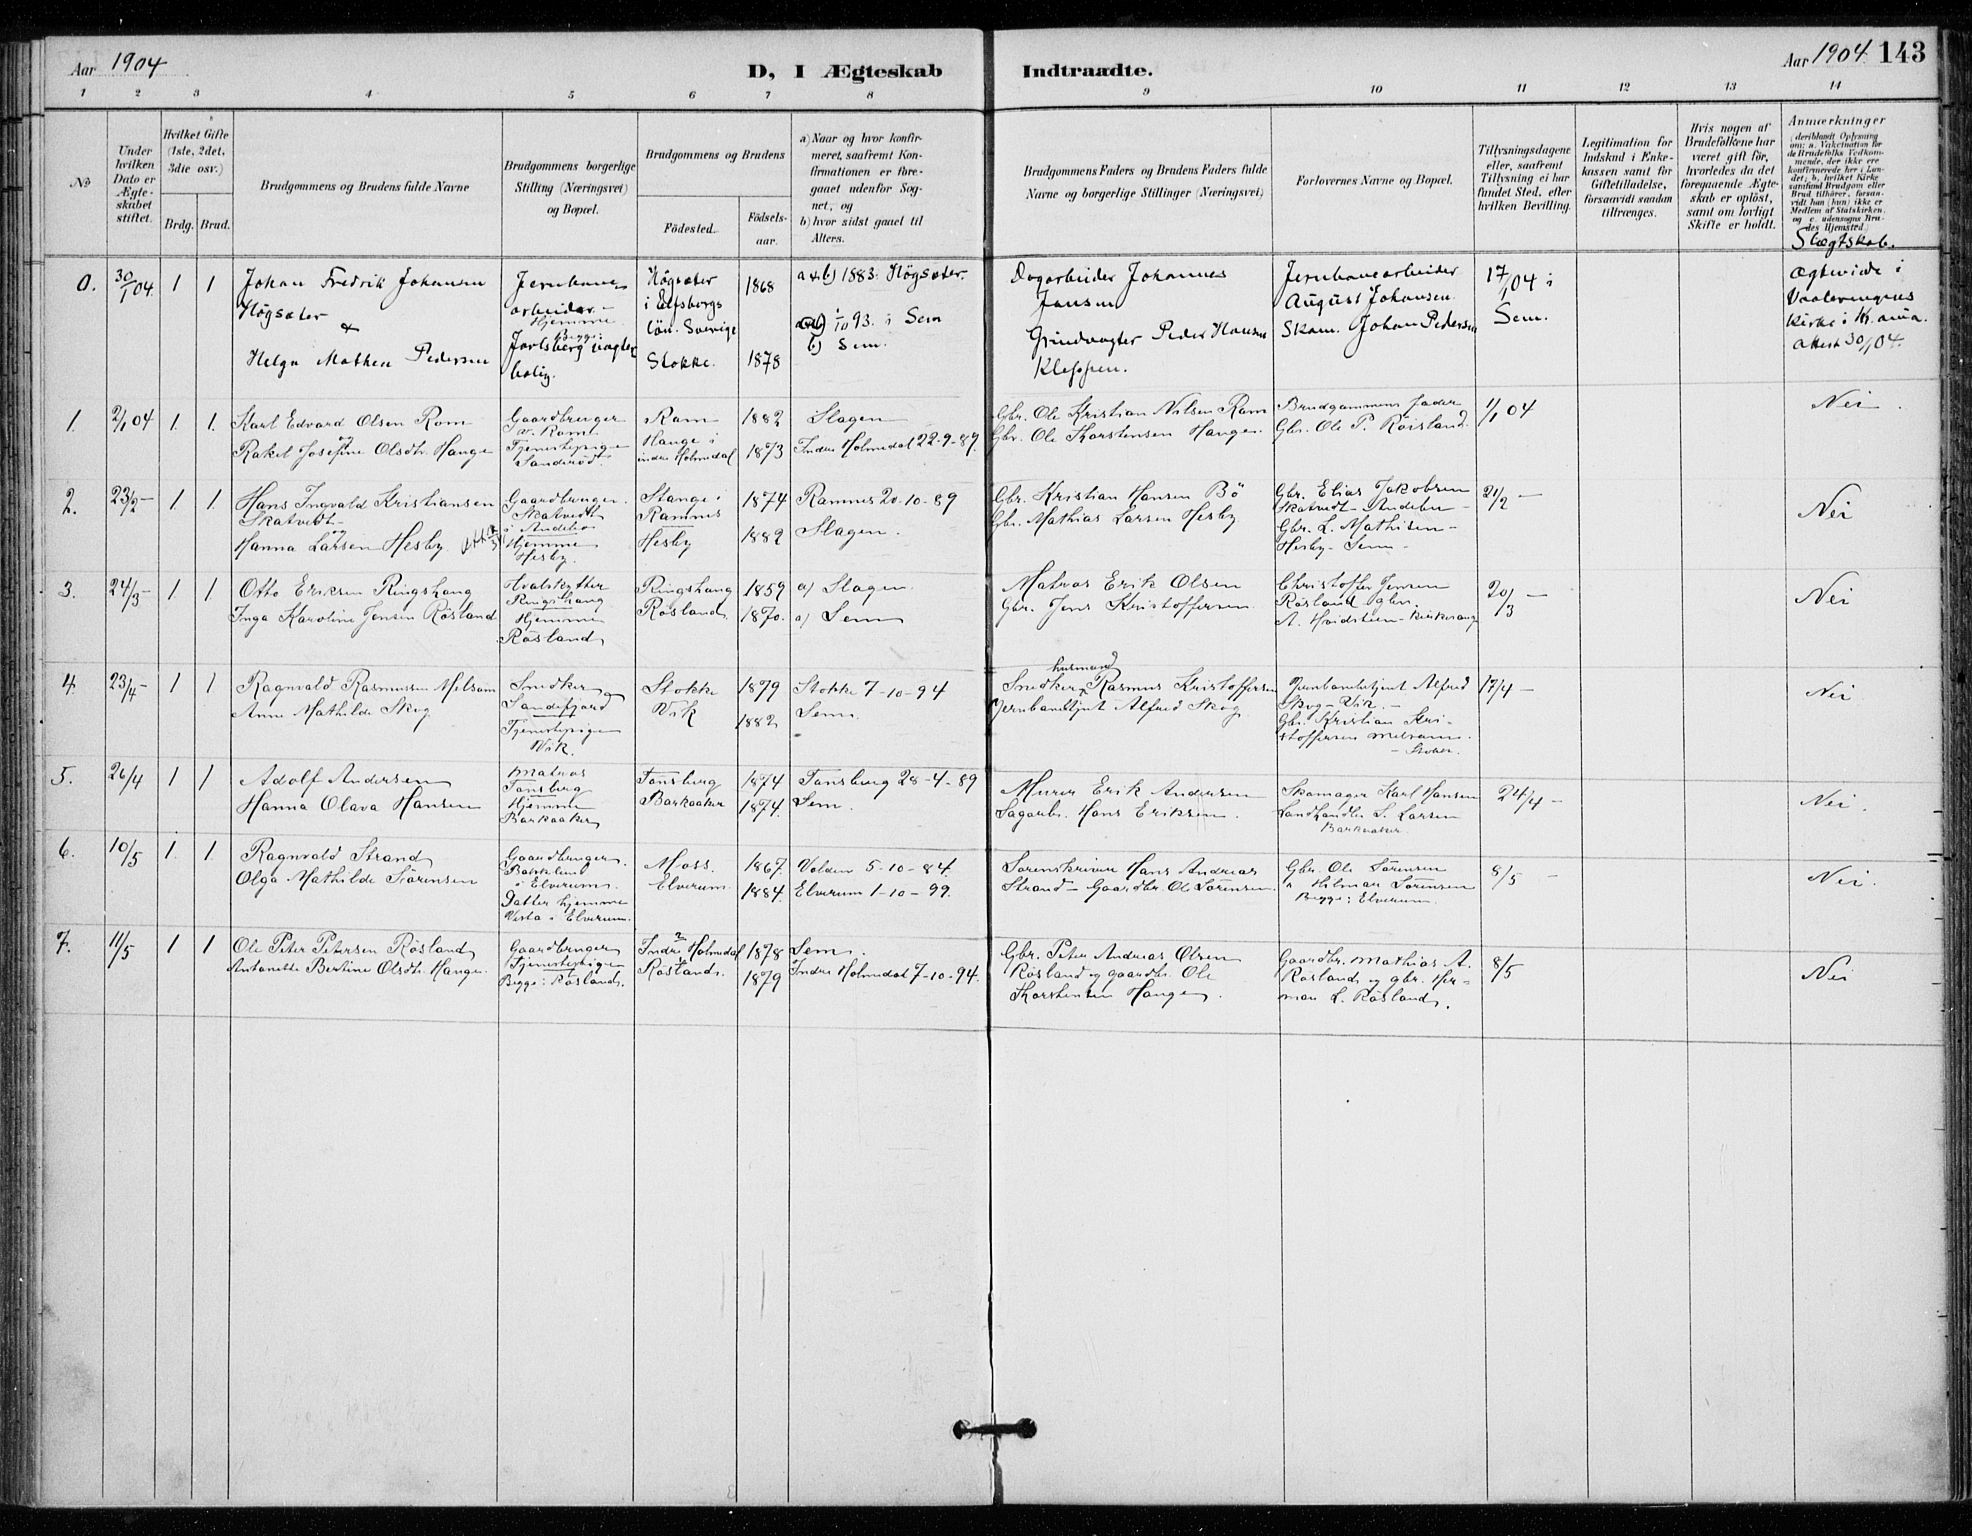 Aar 1904
D, I Ægteskab
Indtraadte.
Aar 1904. 143
1 2 3 4 5 6 7 8 9 10 11 12 13 14
No
Under hvilken Dato er Ægteskabet stiftet.
Hvilket Gifte (1ste, 2det, 3die osv.)
Brdg. Brud.
Brudgommens og Brudens fulde Navne
Brudgommens borgerlige Stilling (Næringsvei) og Bopæl.
Brudgommens og Brudens
Fødested. Fødselsaar.
a) Naar og hvor konfirmeret, saafremt Konfirmationen er foregaaet udenfor Sognet, og
b) hvor sidst gaaet til Alters.
Brudgommens Faders og Brudens Faders fulde Navne og borgerlige Stillinger (Næringsvei)
Forlovernes Navne og Bopæl.
Tillysningsdagene eller, saafremt Tillysning ei har fundet Sted, efter hvilken Bevilling.
Legitimation for Indskud i Enkekassen samt for Giftetilladelse, forsaavidt saadan tiltrænges.
Hvis nogen af Brudefolkene har været gift før, hvorledes da det foregaaende Ægteskab er opløst, samt om lovligt Skifte er holdt.
Anmærkninger
(deriblandt Oplysning om: a. Vakcination for de Brudefolks Vedkommende, der ikke ere konfirmerede her i Landet; b. hvilket Kirkesamfund Brudgom eller Brud tilhører, forsavidt han (hun) ikke er Medlem af Statskirken, og c. udensogns Brudes Hjemsted.)
Slægtskab.
0. 30/1 04. 1 1
Johan Fredrik Johansen
Høgsæter
&
Helga Mathea Pedersen
Jernbane-
arbeider –
Hjemme
Begge:
Jarlsberg vogter
bolig.
Høgsæter
i Elfsborgs
län. Sverige
Stokke.
1868
1878
a & b) 1883. Høgsæter.
1/10 93. i Sem
b) Sem.
Dagarbeider Johannes
Jansen
Grindvogter Peder Hansen
Kleppen.
Jernbanearbeider
August Johansen
Skom. Johan Pedersen
17/1 04 i
Sem.
Ægteviede i
Vaalerengens
Kirke i Kr.ania.
attest 30/1 04.
1. 2/1 04 1. 1.
Karl Edvard Olsen Rom
og
Rakel Josefine Olsdtr. Hauge
Gaardbruger
Tjenestepige
Sanderød
Ram
Hauge i
indre Holmedal
1882
1873
Slagen
Indre Holmedal 22-9-89.
Gbr. Ole Kristian Nilsen Ram
Gbr. Ole Torstensen Hauge.
Brudgommens fader
Gbr. Ole P. Røisland.
1/1 04
Nei.
2. 23/2 – 1 1.
Hans Ingvald Kristiansen
Skatvedt
og
Hanna Larsen Hesby
Gaardbruger
Skatvedt
i Andebu
Hjemme
Hesby.
Stange i
Ramnes
Hesby
1874
1882
Ramnes 20-10-89
Slagen.
Gbr. Kristian Hansen Bö
Gbr. Mathias Larsen Hesby
Gbr. Elias Jakobsen
Skatvedt – Andebu –
Gbr. L. Mathisen –
Hesby – Sem –
21/2 –
Nei
3. 24/3 – 1 1
Otto Eriksen Ringshaug
Inga Karoline Jensen Røsland
Hvalskytter
Ringshaug
Hjemme
Røsland
Ringshaug
Røsland
1859
1870.
a) Slagen.
a) Sem
Matros Erik Olsen
Gbr. Jens Kristoffersen
Christoffer Jensen
Røsland gbr.
20/3 –
Nei
4. 23/4 – 1 1
Ragnvald Rasmussen Melsom
Anne Mathilde Skog
Snedker
Sandefjord
Tjenestepige
Vik.
Stokke
Vik
1879
1882
Stokke 7-10-94
Sem.
husmand
Snedker Rasmus Kristoffersen
Jernbanebetjent Alfred Skog
Jernbanebetjent Alfred
Skog – Vik. –
Gbr. Kristian Kri-
stoffersen Melsom.
– Stokke.
17/4 –
Nei
5. 26/4 1 1
Adolf Andersen
Hanna Olava Hansen
Matros
Tønsberg
Hjemme
Barkaaker
Tønsberg
Barkaaker
1874
1874.
Tønsberg 28-4-89
Sem.
Murer Erik Andersen
Sagarb. Hans Eriksen.
Skomager Karl Hansen
Landhandler S. Larsen
Barkaaker.
24/4 –
Nei.
6. 10/5 1. 1.
Ragnvald Strand
Olga Mathilde Sørensen
Gaardbruger.
i Elverum.
Datter hjemme
Vesta i Elverum.
Moss.
Elverum
1867.
1884.
Volden 5-10-84.
Elverum 1-10-99.
Sorenskriver Hans Andreas
Strand – Gaardbr. Ole Sørensen.
Gbr. Ole Sørensen
" Hilmar Sørensen
Begge: Elverum.
8/5 –
Nei.
7. 11/5 1 1
Ole Peter Petersen Røsland
Antonette Bertine Olsdtr. Hauge.
Gaardbruger
Tjenestepige
Begge: Røsland.
2
Indre Holmedal
1
Røsland.
1878
1879
Sem.
Indre Holmedal 7-10-94.
Gbr. Peter Andreas Olsen
Røsland og gaardbr. Ole
Torstensen Hauge.
Gaardbr. Mathias A.
Røsland og gbr. Her-
man L. Røsland.
8/5
Nei